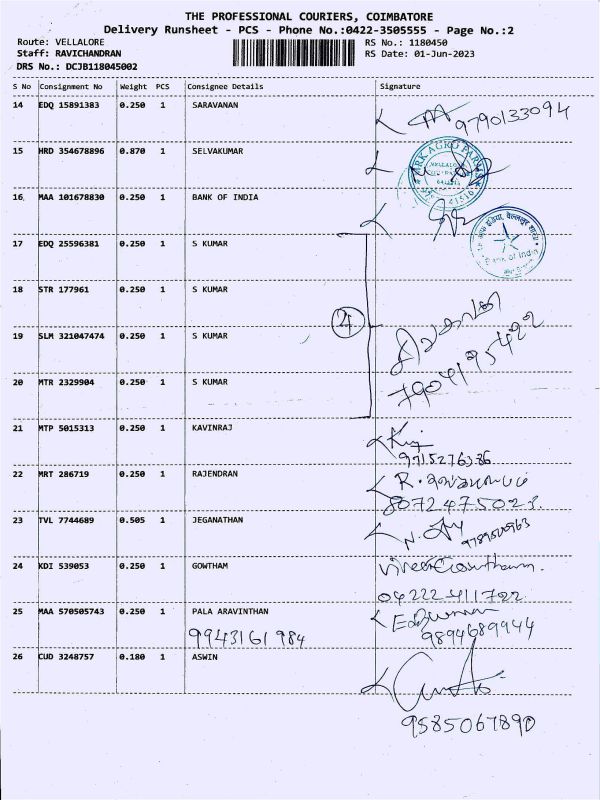 THE PROFESSIONAL COURIERS, COIMBATORE
Delivery Runsheet - PCS - Phone No.:0422-3505555 - Page No.:2
Route: VELLALORE RS No.: 1180450
Staff: RAVICHANDRAN RS Date: 01-Jun-2023
DRS No.: DCJB118045002
S No Consignment No Weight PCS Consignee Details Signature
14 EDQ 15891383 0.250 1 SARAVANAN
9790133094
15 HRD 354678896 0.870 1 SELVAKUMAR
16 MAA 101678830 0.250 1 BANK OF INDIA
Bank of India
17 EDQ 25596381 0.250 1 S KUMAR
18 STR 177961 0.250 1 S KUMAR
4
19 SLM 321047474 0.250 1 S KUMAR
7904195422
20 MTR 2329904 0.250 1 S KUMAR
21 MTP 5015313 0.250 1 KAVINRAJ
9715276386
22 MRT 286719 0.250 1 RAJENDRAN
8072475023
23 TVL 7744689 0.505 1 JEGANATHAN
9789500963
24 KDI 539053 0.250 1 GOWTHAM
04222411722
25 MAA 570505743 0.250 1 PALA ARAVINTHAN
9943161984 9894689944
26 CUD 3248757 0.180 1 ASWIN
9585067890